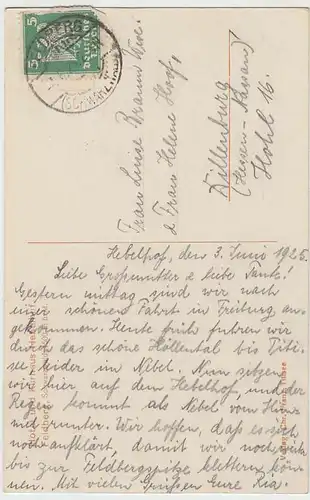 5
5
Deutsches Reich
(SCHWARZWALD)
Frau Luise Braun Wwe.
& Frau Helene Hoof,
Dillenburg
(Hessen-Nassau)
Hohl 16.
Hebelhof, den 3. Juni 1925.
Liebe Großmutter & liebe Tante!
Gestern mittag sind wir nach
einer schönen Fahrt in Freiburg an-
gekommen. Heute früh fuhren wir
durch das schöne Höllental bis Titi-
see leider im Nebel. Nun sitzen
wir hier auf dem Hebelhof, und der
Regen kommt als Nebel vom Him-
mel runter. Wir hoffen, daß es sich
noch aufklärt, damit wir noch
bis zur Feldbergspitze klettern kön-
nen. Mit vielen Grüßen Eure Ria.